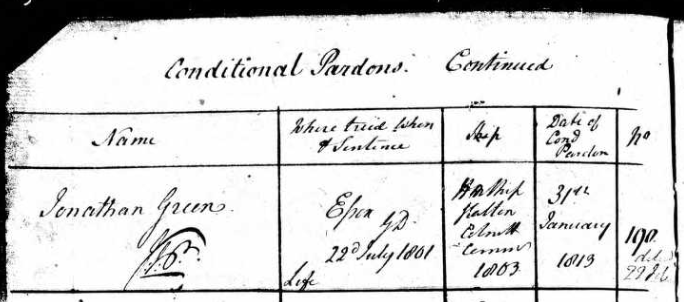 Conditional Pardons. Continued
Name
Where tried When
& Sentence
Ship
Date of
Cond
Pardon
No
Jonathan Green.
Essex
GD.
22d July 1801
Life
Ship
Calcutta
1803
31st
January
1813
190